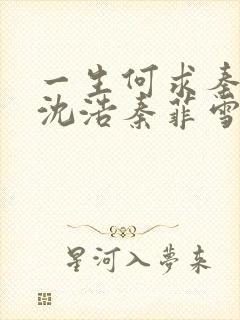 一生何求秦
沈浩秦菲雪
星河入夢来